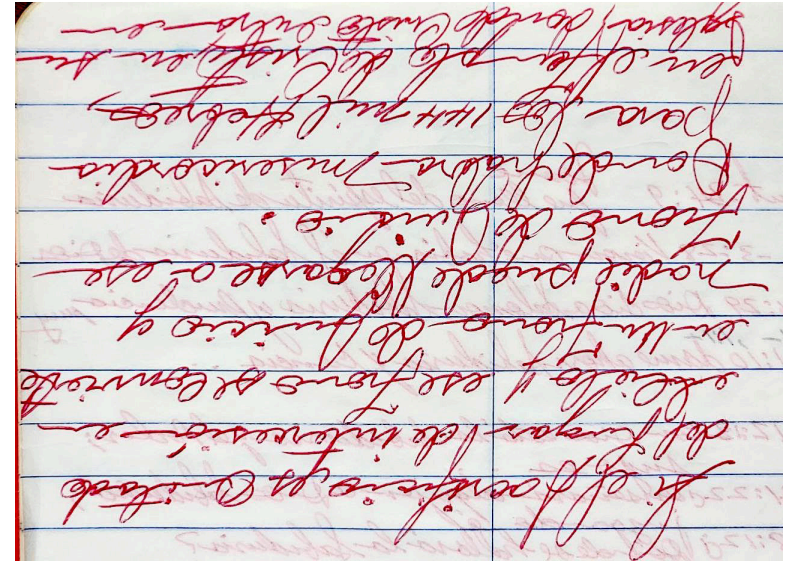 Si el Sacrificio, es Quitado
del Lugar de intercesión en
el cielo y ese trono se convierte
en un trono de Juicio y
nadie puede llegarse a ese
trono de Juicio.
Donde habra misericordia
para los 144 mil Hebreos,
en el templo de Cristo, en su
Iglesia, donde Cristo entra en